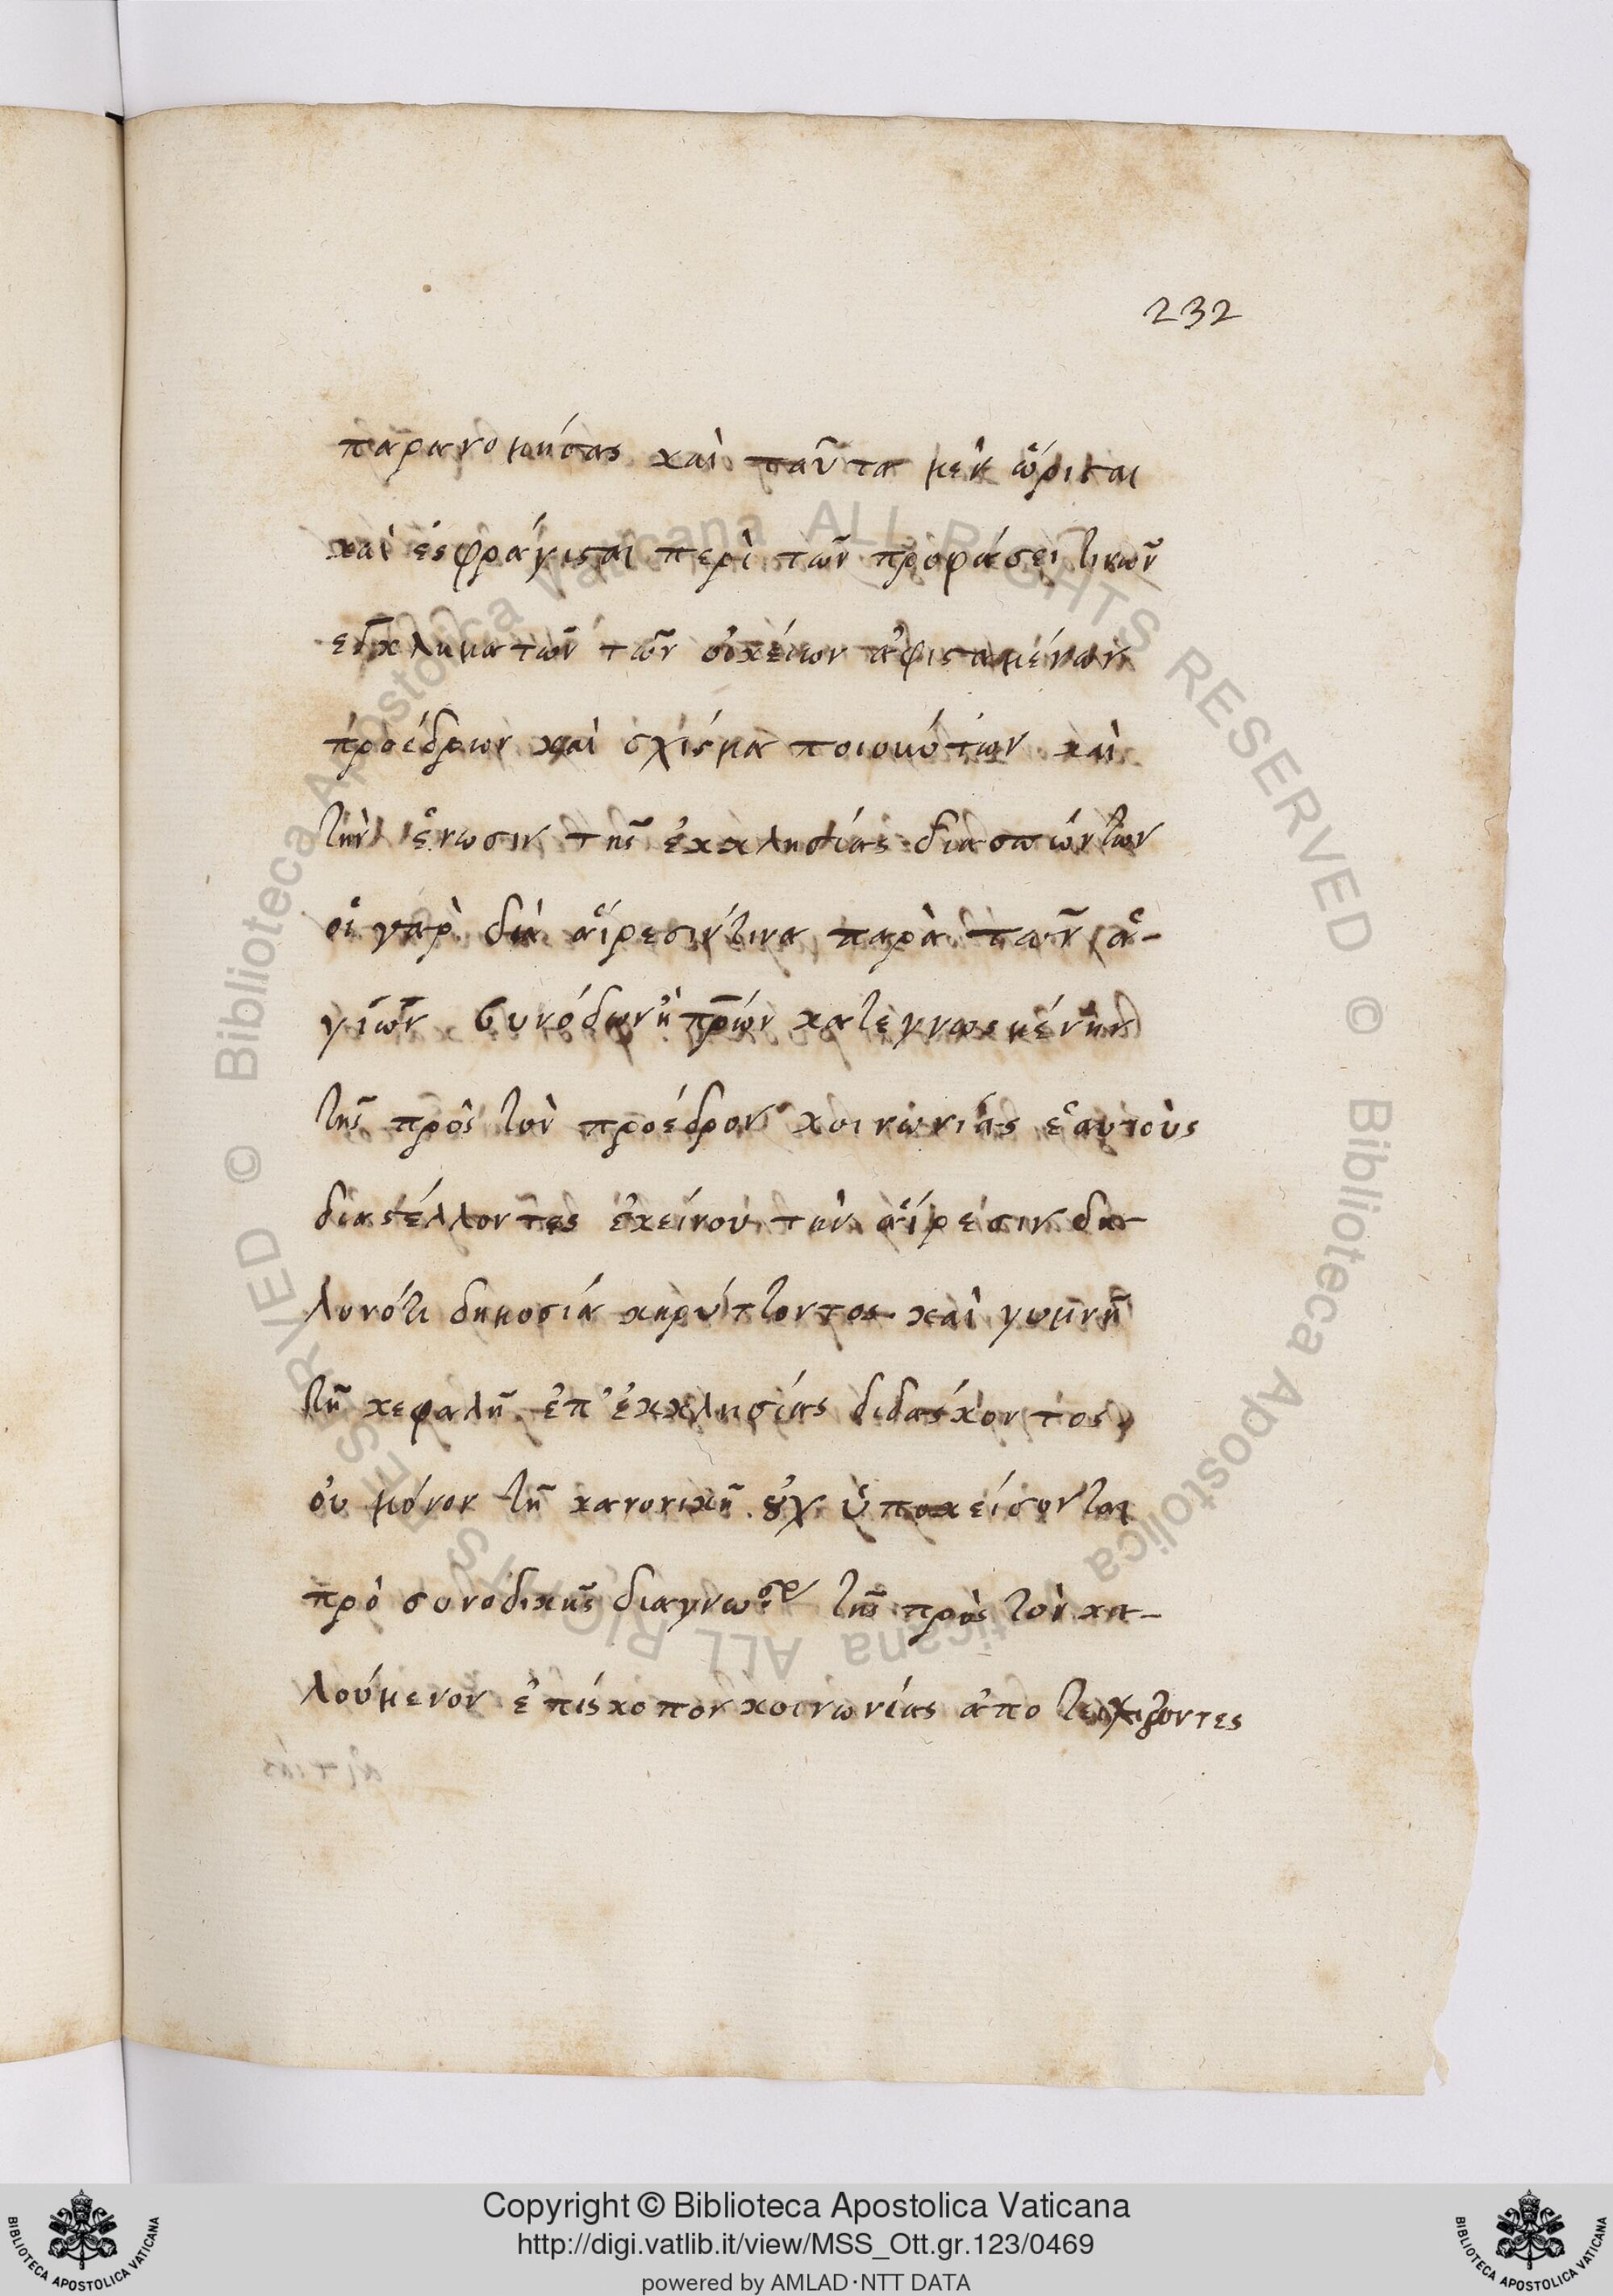 232
παρανομήσας καὶ ταῦτα μὲν ὥρισται
καὶ ἐσφράγισται περὶ τῶν προφάσει τινῶν
ἐγκλημάτων τῶν οἰκείων ἀφισταμένων
προέδρων καὶ σχίσμα ποιούντων καὶ
τὴν ἕνωσιν τῆς ἐκκλησίας διασπώντων
οἱ γὰρ διὰ αἵρεσίν τινα παρὰ τῶν ἁ-
γίων συνόδων ἢ πρῶν κατεγνωσμένην
τῆς πρὸς τὸν πρόεδρον κοινωνίας ἑαυτοὺς
διαστέλλοντες ἐκείνου τὴν αἵρεσιν δη-
λονότι δημοσίᾳ κηρύττοντος καὶ γυμνῇ
τῇ κεφαλῇ ἐπ' ἐκκλησίας διδάσκοντος,
οὐ μόνον τῇ κανονικῇ οὐχ ὑποκείσονται
πρὸ συνοδικῆς διαγνώσεως τῆς πρὸς τὸν κα-
λούμενον ἐπίσκοπον κοινωνίας ἀποτειχίζοντες
Copyright © Biblioteca Apostolica Vaticana
http://digi.vatlib.it/view/MSS_Ott.gr.123/0469
powered by AMLAD·NTT DATA
BIBLIOTECA APOSTOLICA VATICANA
BIBLIOTECA APOSTOLICA VATICANA
© Biblioteca Apostolica Vaticana ALL RIGHTS RESERVED © Biblioteca Apostolica Vaticana ALL RIGHTS RESERVED